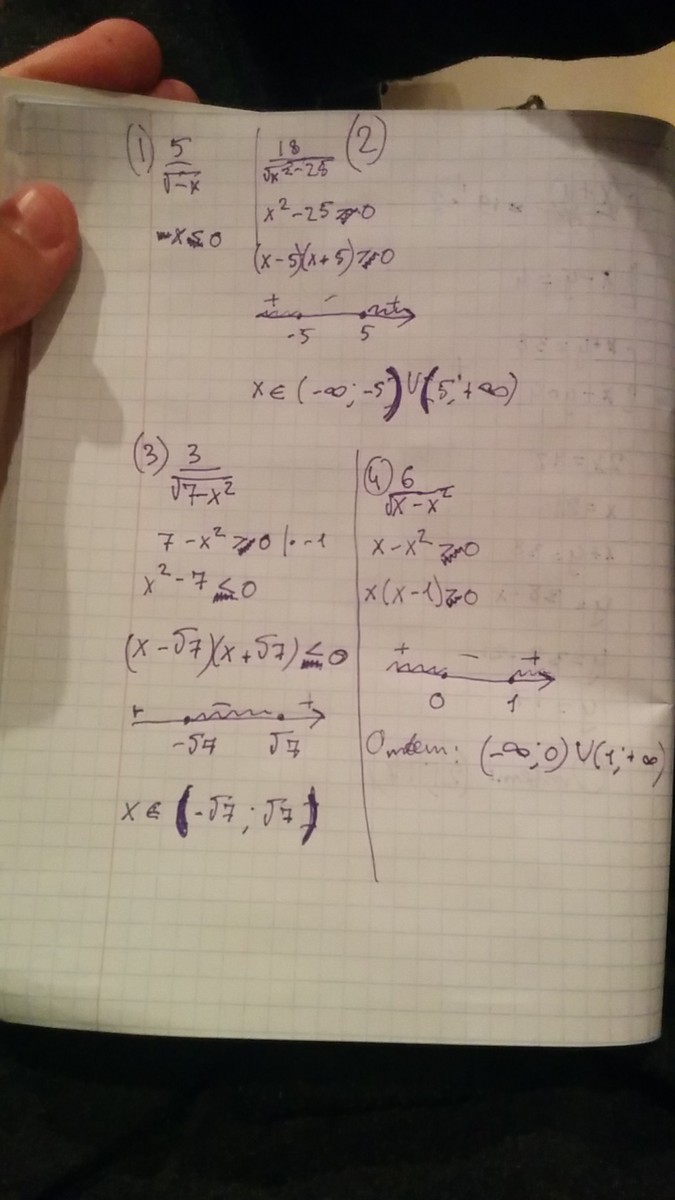 (1) 5/√-x
-x≤0
18/√x²-25 (2)
x²-25≥0
(x-5)(x+5)≥0
+ - +
-5 5
x∈(-∞;-5)∪(5;+∞)
(3) 3/√7-x²
7-x²≥0 |·-1
x²-7≤0
(x-√7)(x+√7)≤0
+ - +
-√7 √7
x∈(-√7;√7)
(4) 6/√x-x²
x-x²≥0
x(x-1)≥0
+ - +
0 1
Ответ: (-∞;0)∪(1;+∞)